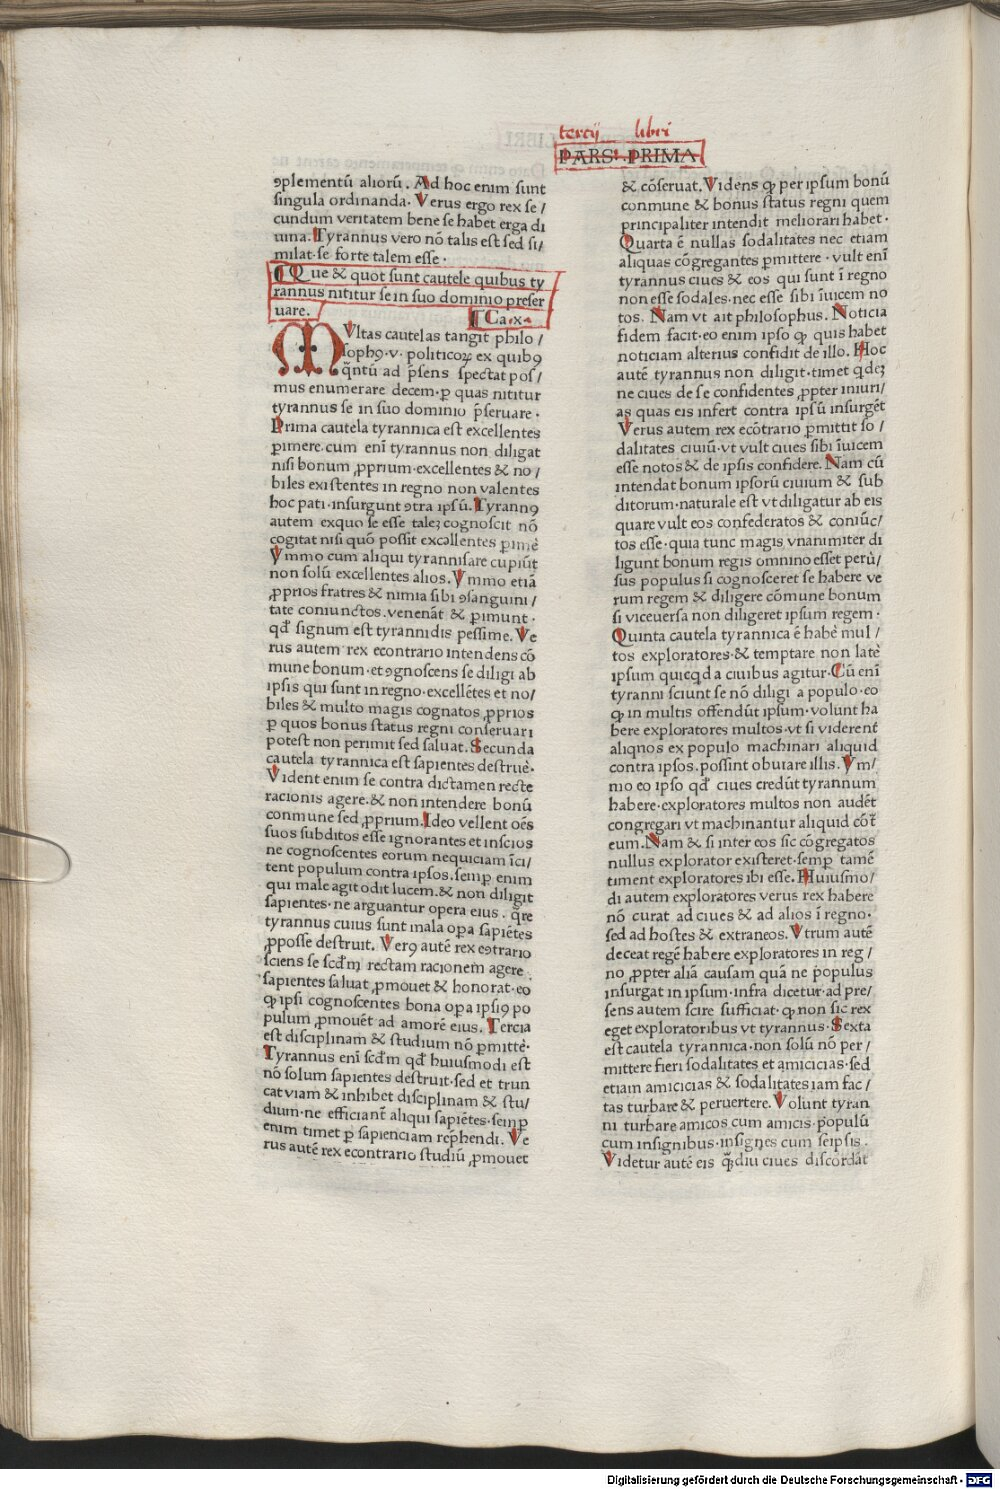 tercij libri
PARS. PRIMA
ꝯplementū alioꝝū. Ad hoc enim sunt
singula ordinanda. Verus ergo rex se/
cundum veritatem bene se habet erga di
uina. Tyrannus vero nō talis est sed si/
milat se forte talem esse.
¶ Que & quot sunt cautele quibus ty
rannus nititur se in suo dominio preser
uare. ¶ Ca.x.
MVltas cautelas tangit philo/
sophꝯ.v. politicoꝝ ex quibꝯ
q̄ntū ad p̄sens spectat pos/
mus enumerare decem.ꝑ quas nititur
tyrannus se in suo dominio p̄seruare.
Prima cautela tyrannica est excellentes
ꝑimere.cum enī tyrannus non diligat
nisi bonum ꝓprium.excellentes & no/
biles existentes in regno non valentes
hoc pati.insurgunt ꝯtra ipsū. Tyrannꝯ
autem exquo se esse talez cognoscit nō
cogitat nisi quō possit excellentes ꝑimē
Ymmo cum aliqui tyrannisare cupiūt
non solū excellentes alios. Ymmo etiā
ꝓprios fratres & nimia sibi ꝯsanguini/
tate coniunctos.venenāt & ꝑimunt.
qd̄ signum est tyrannidis pessime. Ve
rus autem rex econtrario intendens cō
mune bonum.et ꝯgnoscens se diligi ab
ipsis qui sunt in regno.excellētes et no/
biles & multo magis cognatos ꝓprios
ꝑ quos bonus status regni conseruari
potest non perimit sed saluat. Secunda
cautela tyrannica est sapientes destruē.
Vident enim se contra dictamen recte
racionis agere.& non intendere bonū
conmune sed ꝓprium. Ideo vellent oēs
suos subditos esse ignorantes et inscios
ne cognoscentes eorum nequiciam īci/
tent populum contra ipsos.semꝑ enim
qui male agit odit lucem.& non diligit
sapientes.ne arguantur opera eius. q̄re
tyrannus cuius sunt mala oꝑa sapiētes
ꝓposse destruit. Verꝯ autē rex eꝯtrario
sciens se scd̄m rectam racionem agere
sapientes saluat ꝓmouet & honorat.eo
ꝙ ipsi cognoscentes bona oꝑa ipsiꝯ po
pulum ꝓmouēt ad amorē eius. Tercia
est disciplinam & studium nō ꝑmittē.
Tyrannus enī scd̄m qd̄ huiusmodi est
nō solum sapientes destruit.sed et trun
cat viam & inhibet disciplinam & stu/
dium.ne efficianť aliqui sapiētes.semꝑ
enim timet ꝑ sapienciam rep̄hendi. Ve
rus autē rex econtrario studiū ꝓmouet
& cōseruat. Videns ꝙ per ipsum bonū
conmune & bonus status regni quem
principaliter intendit meliorari habet.
Quarta ē nullas sodalitates nec etiam
aliquas cōgregantes ꝑmittere. vult enī
tyrannus ciues & eos qui sunt ī regno
non esse sodales.nec esse sibi īuicem no
tos. Nam vt ait philosophus. Noticia
fidem facit.eo enim ipso ꝙ quis habet
noticiam alterius confidit de illo. Hoc
autē tyrannus non diligit.timet q̇dez
ne ciues de se confidentes ꝓpter iniuri/
as quas eis infert contra ipsū insurgēt
Verus autem rex ecōtrario ꝑmittit so/
dalitates ciuiū.vt vult ciues sibi īuicem
esse notos & de ipsis confidere. Nam cū
intendat bonum ipsorū ciuium & sub
ditorum.naturale est vt diligatur ab eis
quare vult eos confederatos & coniūc/
tos esse.quia tunc magis vnanimiter di
ligunt bonum regis omnino esset perū/
sus populus si cognosceret se habere ve
rum regem & diligere cōmune bonum
si viceuersa non diligeret ipsum regem.
Quinta cautela tyrannica ē habē mul/
tos exploratores.& temptare non latē
ipsum quicqd a ciuibus agitur. Cū enī
tyranni sciunt se nō diligi a populo.eo
ꝙ in multis offendūt ipsum.volunt ha
bere exploratores multos.vt si viderent
aliqnos ex populo machinari aliquid
contra ipsos.possint obuiare illis. Ym/
mo eo ipso qd̄ ciues credūt tyrannum
habere.exploratores multos non audēt
congregari vt machinantur aliquid cōt̄
eum. Nam & si inter eos sic cōgregatos
nullus explorator existeret.semꝑ tamē
timent exploratores ibi esse. Huiusmo/
di autem exploratores verus rex habere
nō curat ad ciues & ad alios ī regno.
sed ad hostes & extraneos. Vtrum autē
deceat regē habere exploratores in reg/
no ꝓpter aliā causam quā ne populus
insurgat in ipsum.infra dicetur.ad pre/
sens autem scire sufficiat.ꝙ non sic rex
eget exploratoribus vt tyrannus. Sexta
est cautela tyrannica.non solū nō per/
mittere fieri sodalitates et amicicias.sed
etiam amicicias & sodalitates iam fac/
tas turbare & peruertere. Volunt tyran
ni turbare amicos cum amicis.populū
cum insignibus.insignes cum seipsis.
Videtur autē eis q̄diu ciues discordāt
Digitalisierung gefördert durch die Deutsche Forschungsgemeinschaft - DFG